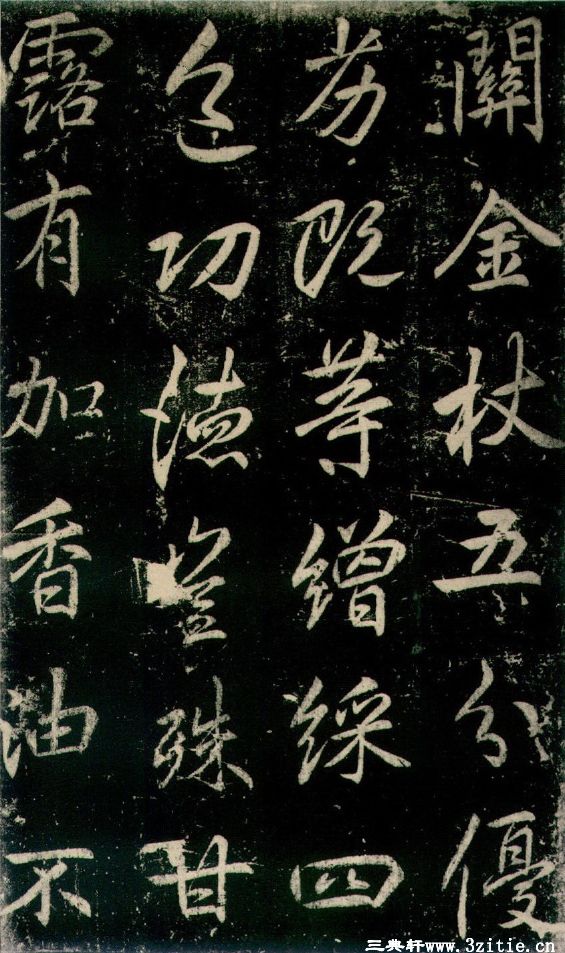 關金杖五分優
劣既等繒綵四
色功德豈殊甘
露有加香油不
三典轩www.3zitie.cn